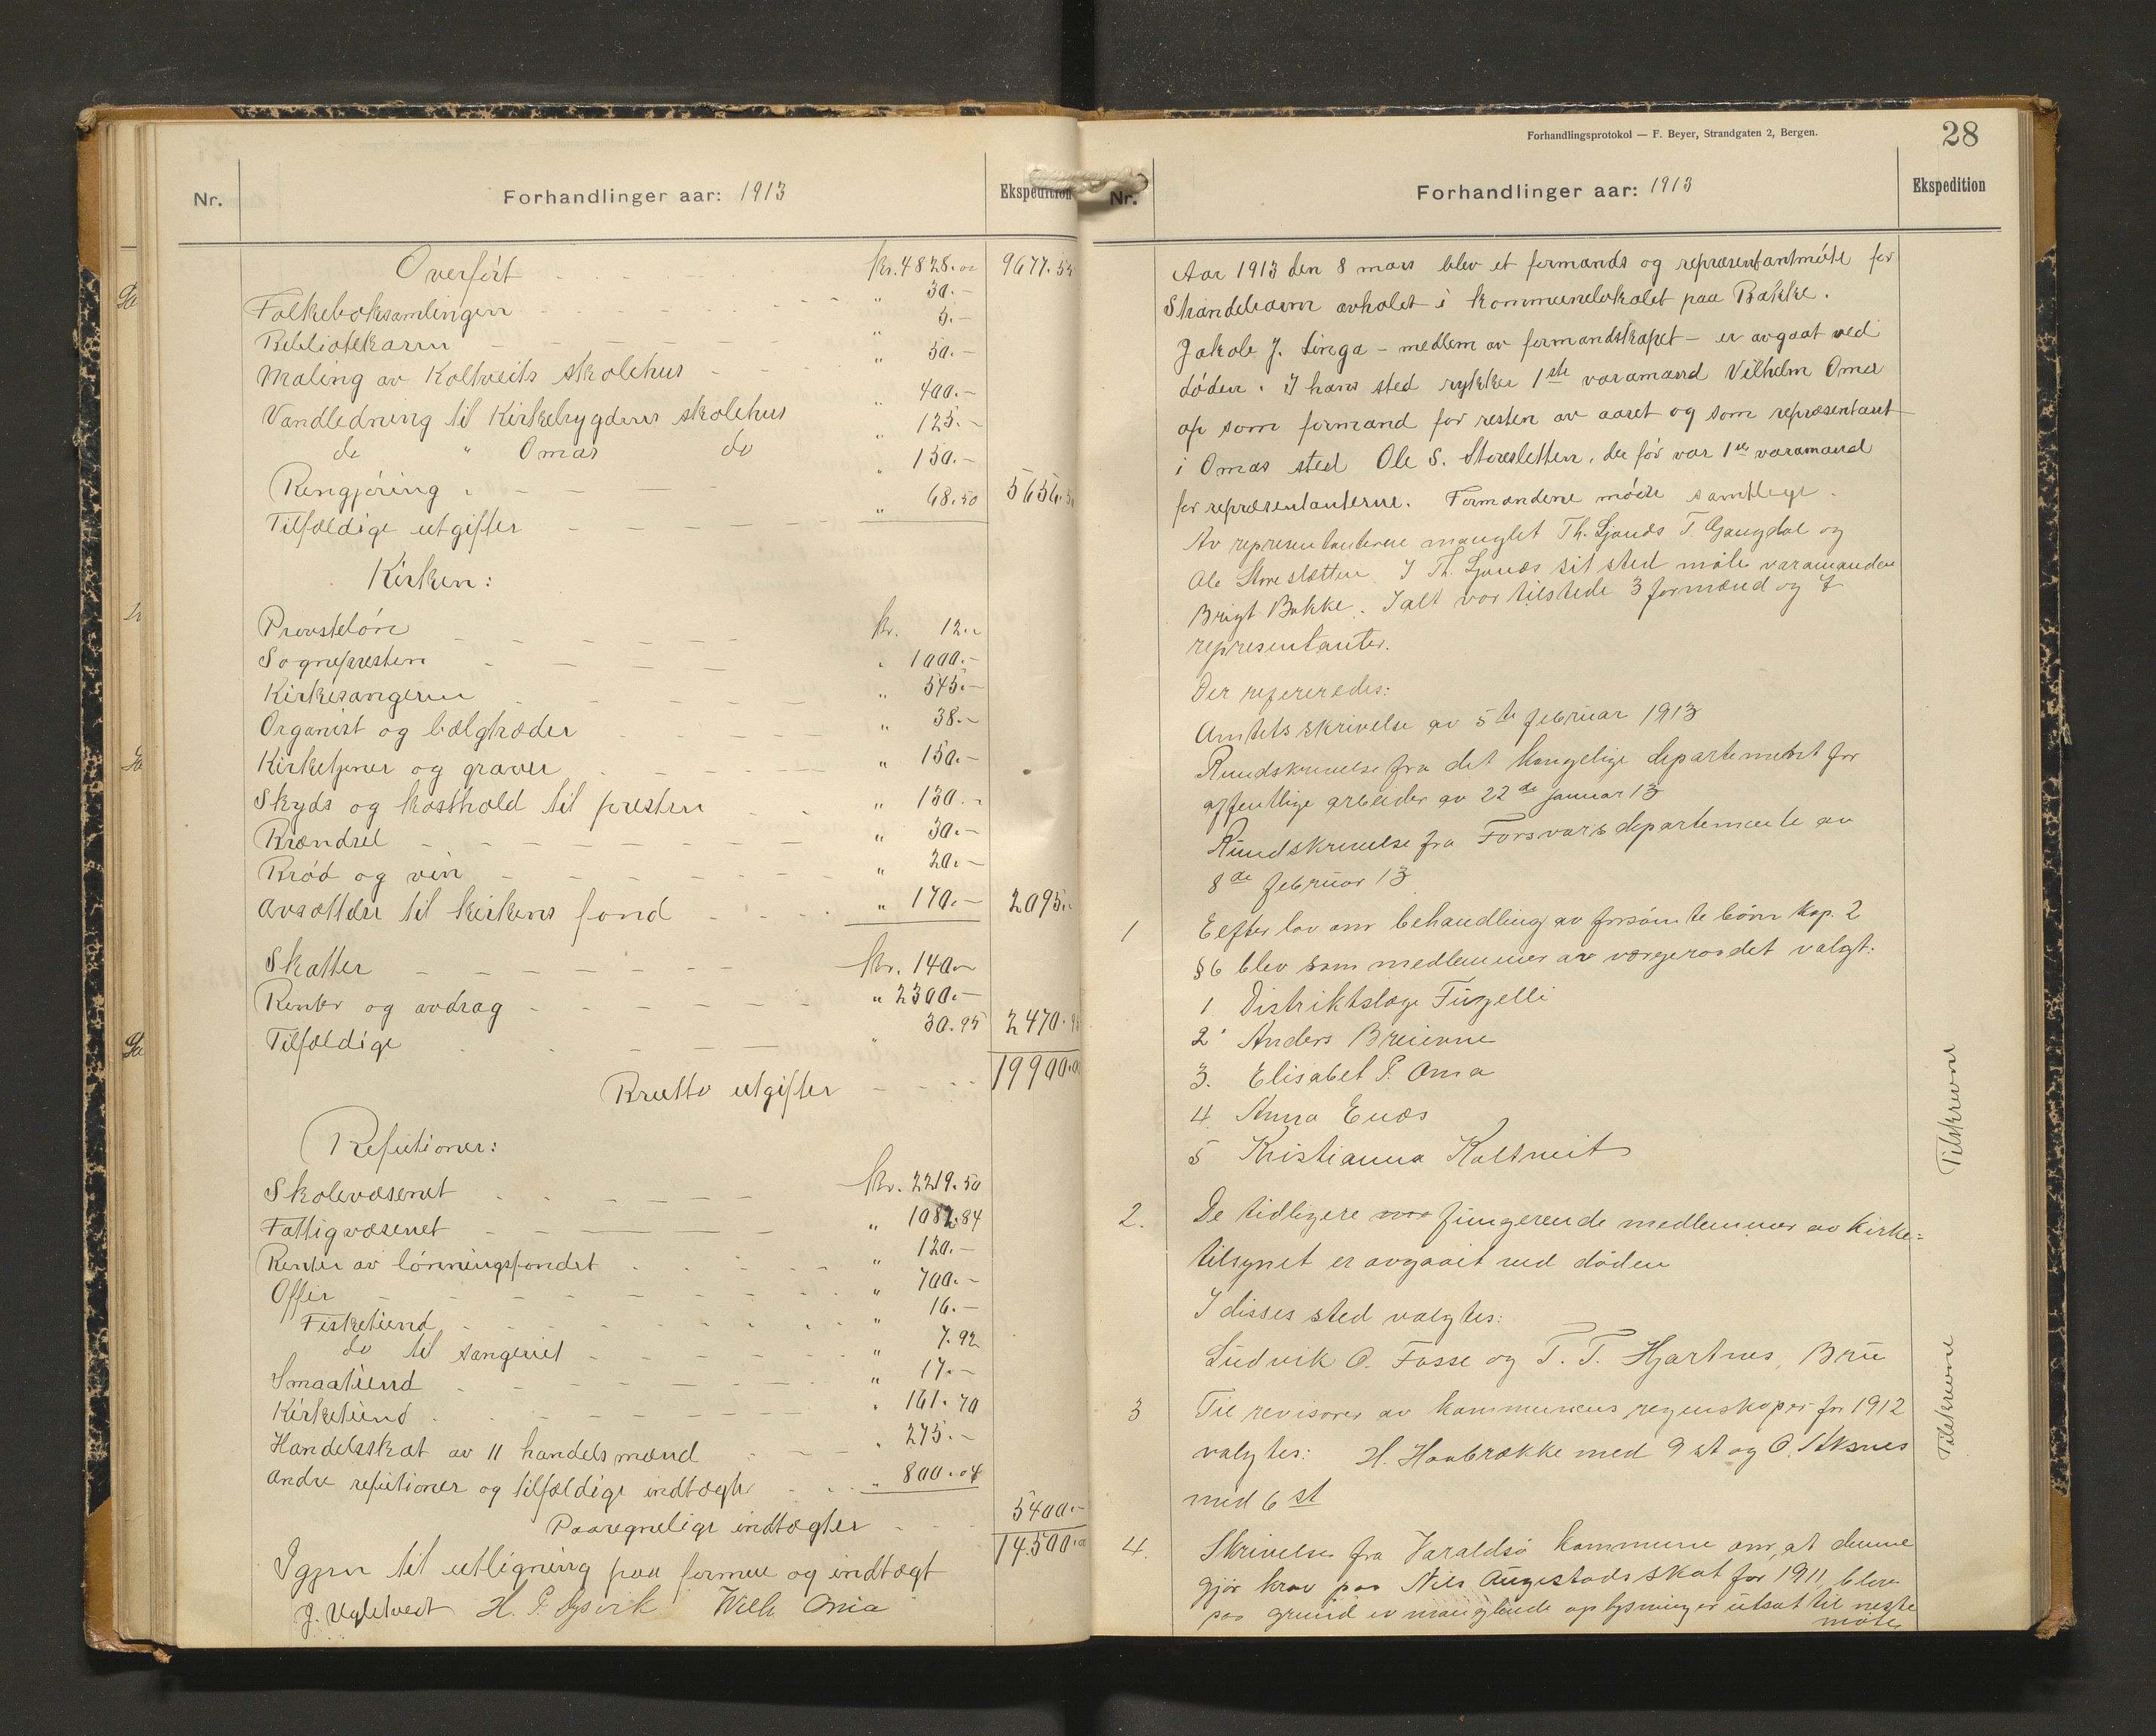 Nr.
Forhandlinger aar: 1913
Ekspedition
Overført - - - - kr. 4828.00 9677.55
Folkeboksamlingen - - - - " 30.-
Bibliotekaren - - - - " 5.-
Maling av Koltveits skolehus - - - " 50.-
Vandledning til Kirkebygdens skolehus " 400.-
do " Omas do " 125.-
Rengjøring - - - - " 150.-
Tilfældige utgifter - - - - " 68.50 5656.50
Kirken:
Provsteløn - - - - kr. 12.-
Sognepresten - - - - " 1000.-
Kirkesangeren - - - - " 545.-
Organist og bælgtræder - - - - " 38.-
Kirketjener og graver - - - - " 150.-
Skyds og kosthold til presten - - " 130.-
Brændsel - - - - " 30.-
Brød og vin - - - - " 20.-
Avsættes til kirkens fond - - - - " 170.- 2095.-
Skatter - - - - kr. 140.-
Renter og avdrag - - - - " 2300.-
Tilfældige - - - - " 30.95 2470.95
Brutto utgifter - - - - 19900.00
Refutioner:
Skolevæsenet - - - - kr. 2219.50
Fattigvæsenet - - - - " 1082.84
Renter av lønningsfondet - - - - " 120.-
Offer - - - - " 700.-
Fisketiend - - - - " 16.-
do til sangeriet - - - - " 7.92
Smaatiend - - - - " 17.-
Kirketiend - - - - " 161.70
Handelsskat av 11 handelsmænd - - - " 275.-
Andre refutioner og tilfældige indtægter - - " 800.04
Paaregnelige indtægter - - - 5400.-
Igjen til utligning paa formue og indtægt 14.500.00
H. P. Lysvik Wilh Oma
Forhandlingsprotokol — F. Beyer, Strandgaten 2, Bergen.
28
Nr.
Forhandlinger aar: 1913
Ekspedition
Aar 1913 den 8 mars blev et formands og repræsentantmøte for
Strandebarm avholdt i kommunelokalet paa Bakke.
Jakob J. Linga - medlem av formandskapet - er avgaat ved
døden. I hans sted rykker 1ste varamand Vilhelm Oma
op som formand for resten av aaret og som repræsentant
i Omas sted Ole S. Storesletten, der før var 1ste varamand
for repræsentanterne. Formændene møtte samtlege.
Av representanterne manglet Th. Ljonæs T. Gaugdal og
Ole Storeslætten. I Th. Ljonæs sit sted møtte varamanden
Brigt Bakke. Ialt var tilstede 3 formænd og 7
representanter.
Der refereredes:
Amtets skrivelse av 5te februar 1913
Rundskrivelse fra det kongelige departement for
offentlige arbeider av 22de januar 13
Rundskrivelse fra Forsvarsdepartemente av
8de februar 13
1 Eefter lov om behandling av forsømte børn kap. 2
§6 blev som medlemmer av værgeraadet valgt:
1 Distriktslæge Fügelli
2 Anders Breievne
3. Elisabet P. Oma
4. Anna Enæs
5 Kristianna Koltveit
2. De tidligere fungerende medlemmer av kirke=
tilsynet er avgaait ved døden
I disses sted valgtes:
Ludvik O. Fosse og T. T. Hjartnes, Bru
3 Til revisorer av kommunens regnskaper for 1912
valgtes: H. Haabrække med 9 st og O. Aksnes
med 6 st
4. Skrivelse fra Varaldsø kommune om, at denne
gjør krav paa Nils Augestads skat for 1911 blev
paa grund av manglende oplysninger utsat til neste
møte
Tilskrevne
Tilskrevne